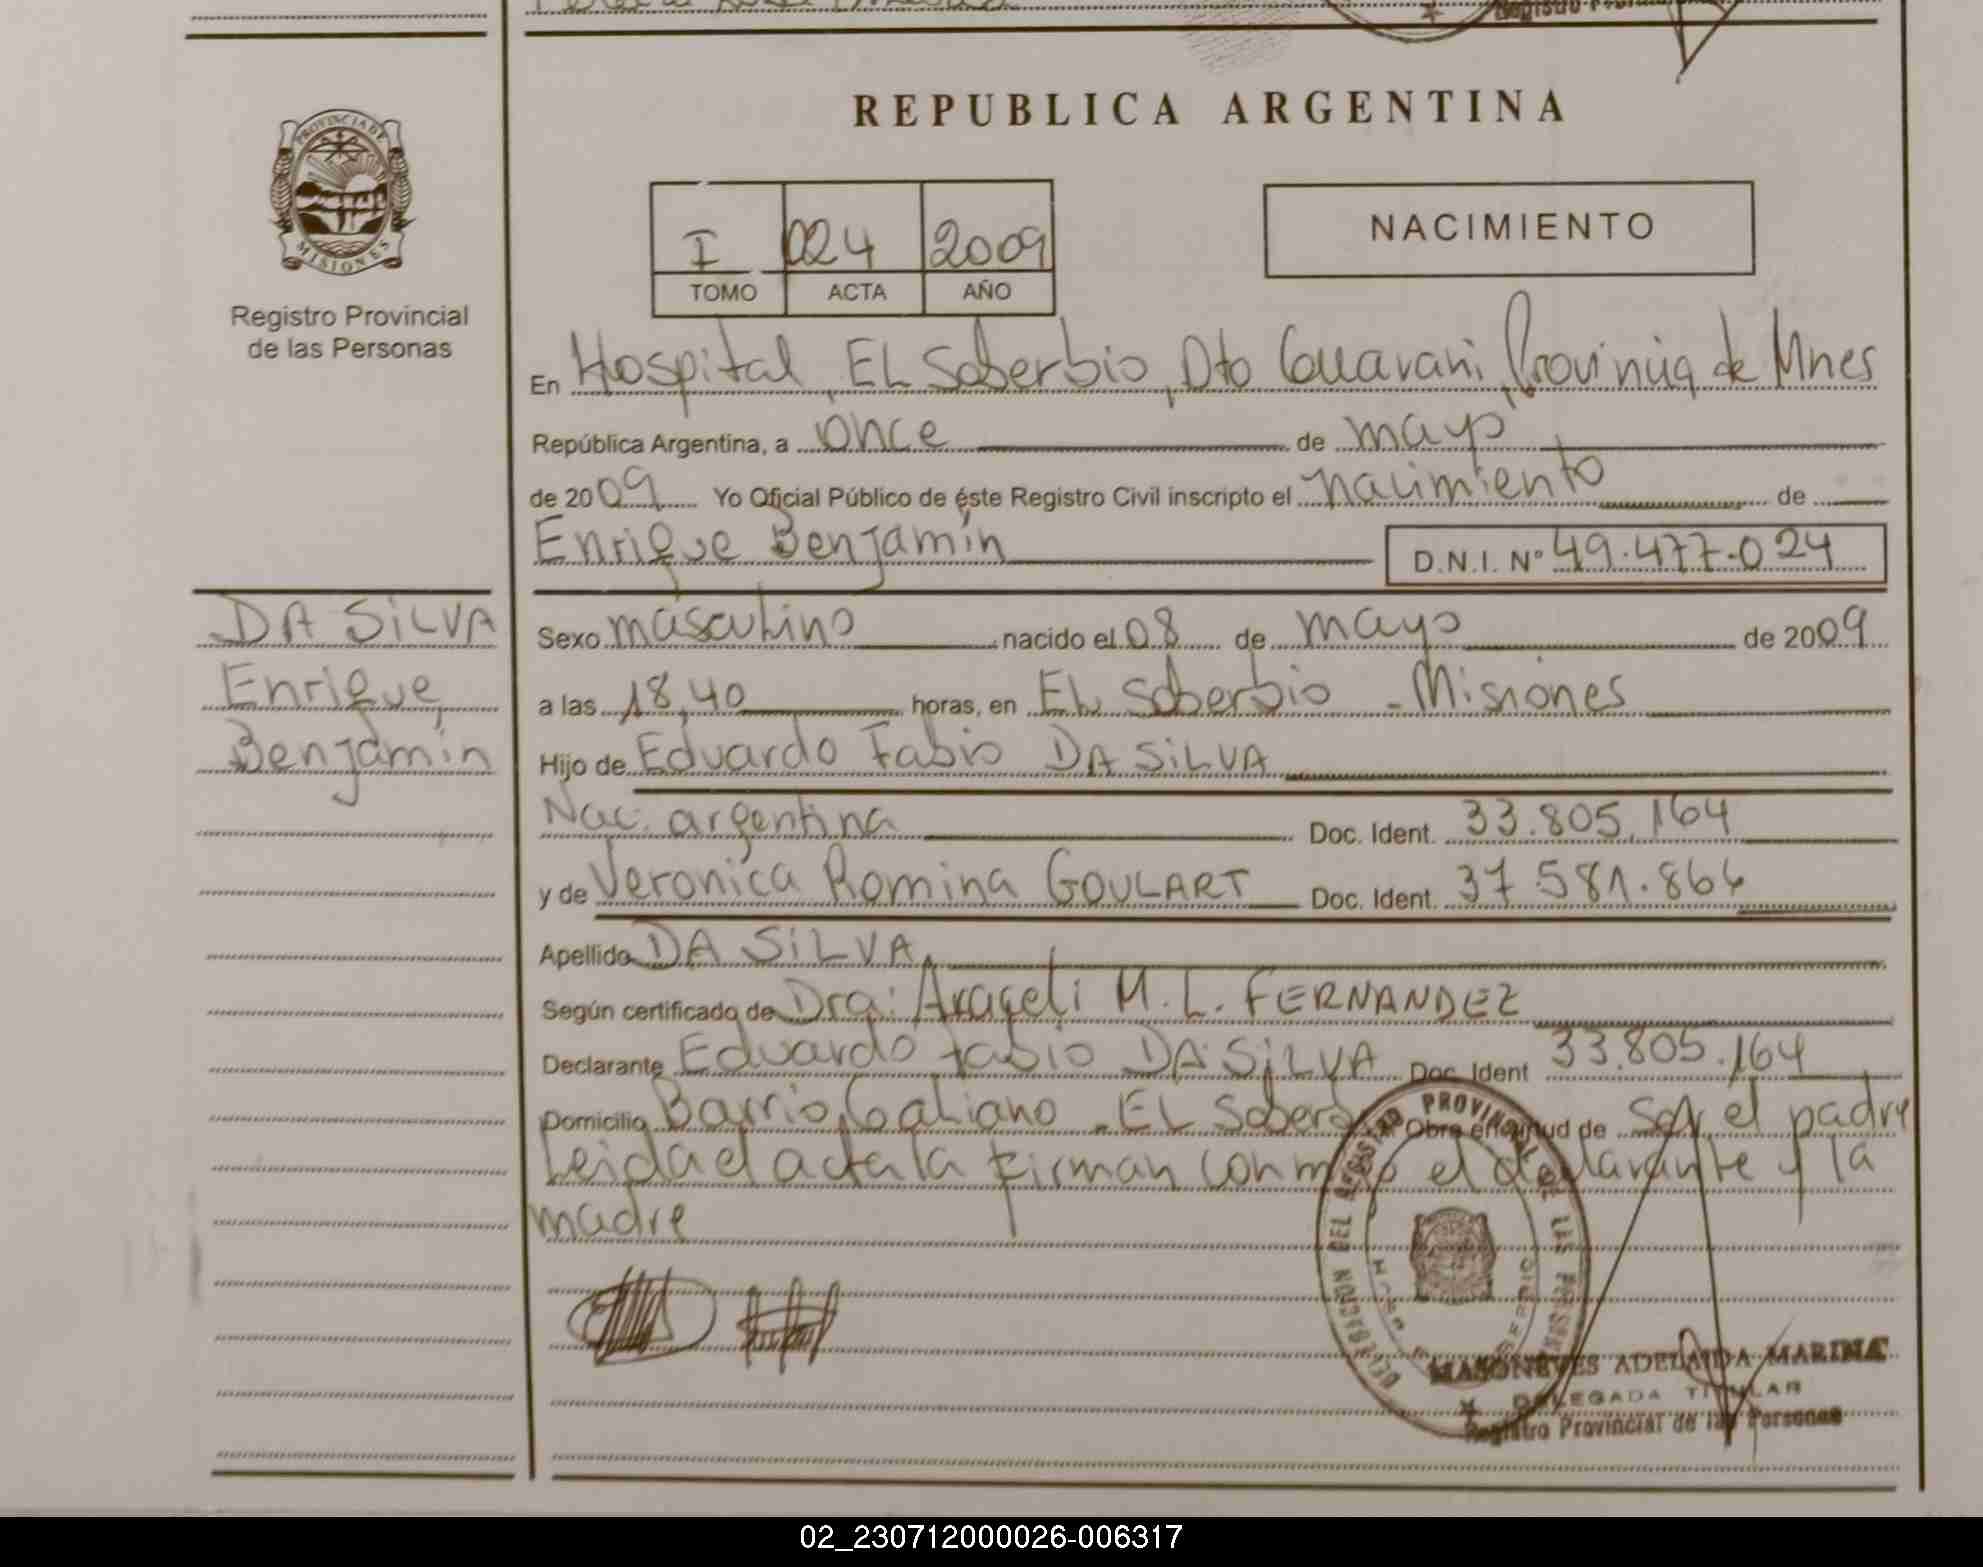 REPUBLICA ARGENTINA
PROVINCIA DE
MISIONES
Registro Provincial
de las Personas
I 024 2009
TOMO ACTA AÑO
NACIMIENTO
En Hospital, EL Soberbio, Dto Guarani, Provincia de Mnes
República Argentina, a once de mayo
de 2009 Yo Oficial Público de éste Registro Civil inscripto el nacimiento de
Enrique Benjamín D.N.I. N° 49.477.024
DA SiLVA
Enrique
Benjamín
Sexo masculino nacido el 08 de mayo de 2009
a las 18,40 horas, en EL Soberbio - Misiones
Hijo de Eduardo Fabio DA SiLVA
Nac. argentina Doc. Ident. 33.805.164
y de Veronica Romina GOULART Doc. Ident. 37.581.864
Apellido DA SiLVA
Según certificado de Dra: Araceli M. L. FERNANDEZ
Declarante Eduardo Fabio DA SiLVA Doc. Ident 33.805.164
Domicilio Barrio Galiano - EL Soberbio Obra en virtud de ser el padre
Leida el acta la firman conmigo el declarante y la
madre
DELEGACION DEL REGISTRO PROVINCIAL DE LAS PERSONAS
ADELAIDA
DELEGADA TITULAR
Registro Provincial de las Personas
02_230712000026-006317